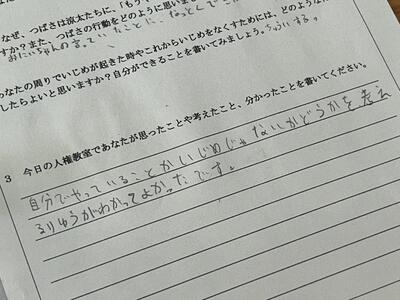 なぜ、つばさは涼太たちに、「もう
すか？また、つばさの行動をどのように思いま
おにいちゃんの言っていたことに、なっとくでき
あなたの周りでいじめが起きた時やこれからいじめをなくすためには、どのような
したらよいと思いますか？自分ができることを書いてみましょう。ちゅういする。
3 今日の人権教室であなたが思ったことや考えたこと、分かったことを書いてください。
自分でやっていることがいじめじゃないかどうかを考え
るりゆうがわかってよかったです。